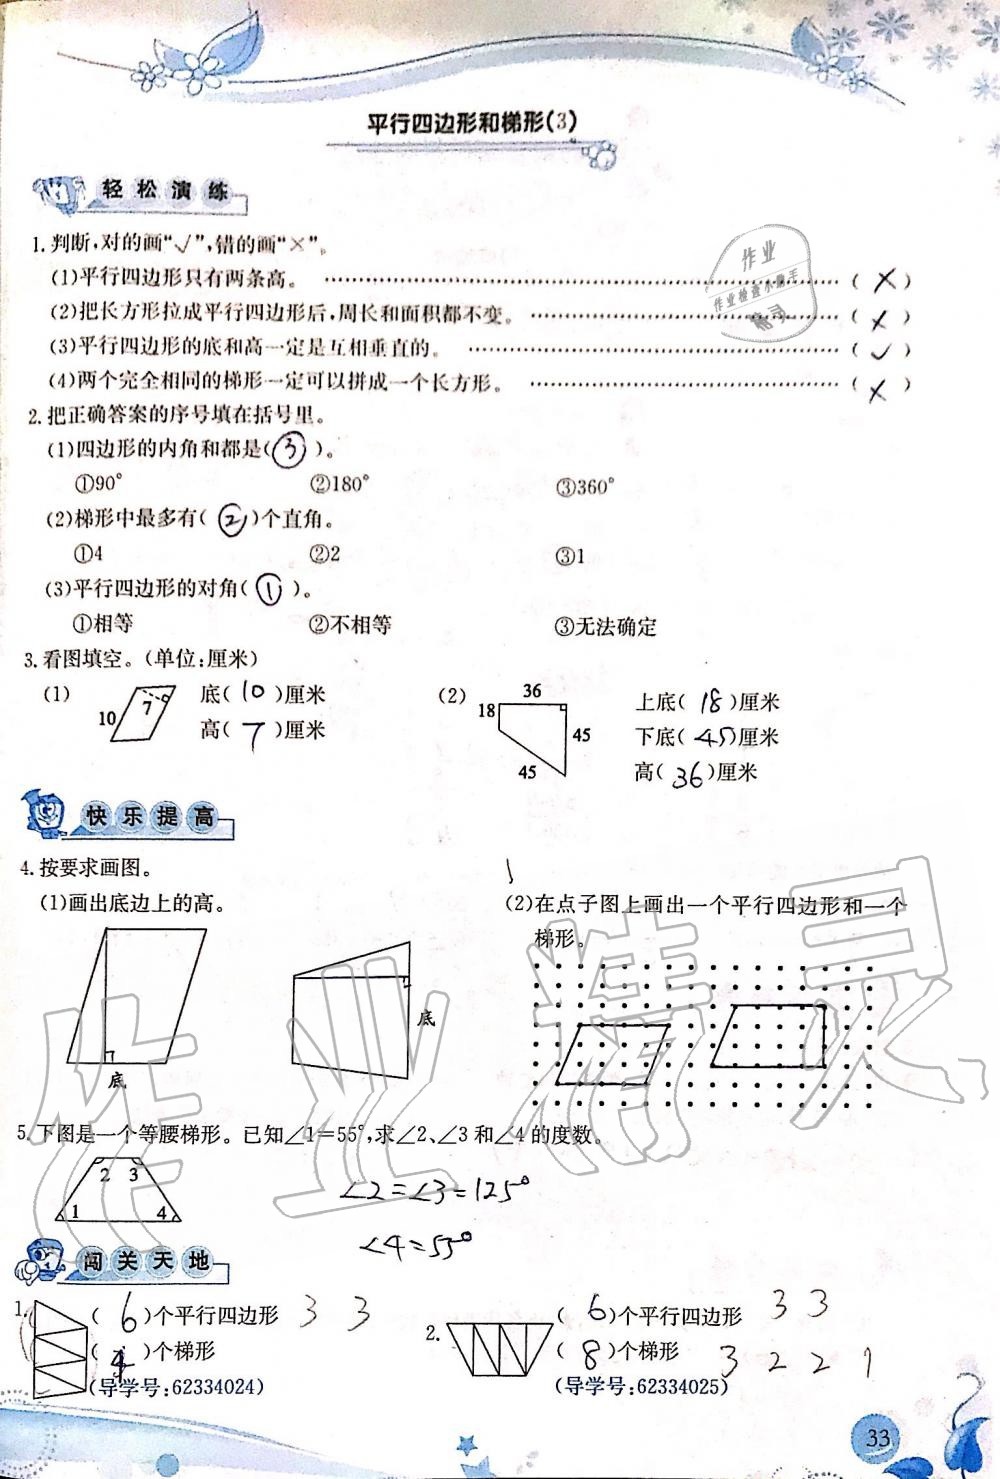 平行四边形和梯形(3)
轻松演练
1.判断,对的画“√”,错的画“×”。
(1)平行四边形只有两条高。 ………………………………………………( × )
(2)把长方形拉成平行四边形后,周长和面积都不变。 ………………………( × )
(3)平行四边形的底和高一定是互相垂直的。 ………………………………( √ )
(4)两个完全相同的梯形一定可以拼成一个长方形。 ………………………( × )
作业
作业检查小助手
精灵
2.把正确答案的序号填在括号里。
(1)四边形的内角和都是( ③ )。
①90° ②180° ③360°
(2)梯形中最多有( ② )个直角。
①4 ②2 ③1
(3)平行四边形的对角( ① )。
①相等 ②不相等 ③无法确定
3.看图填空。(单位:厘米)
(1) 10 7 底( 10 )厘米
高( 7 )厘米
(2) 36 18 45 45 上底( 18 )厘米
下底( 45 )厘米
高( 36 )厘米
快乐提高
4.按要求画图。
(1)画出底边上的高。
底
底
(2)在点子图上画出一个平行四边形和一个
梯形。
5.下图是一个等腰梯形。已知∠1=55°,求∠2、∠3和∠4的度数。
2 3
1 4
∠2=∠3=125°
∠4=55°
闯关天地
1. ( 6 )个平行四边形 3 3
( )个梯形
(导学号:62334024)
2. ( 6 )个平行四边形 3 3
( 8 )个梯形 3 2 2 1
(导学号:62334025)
33
作业精灵